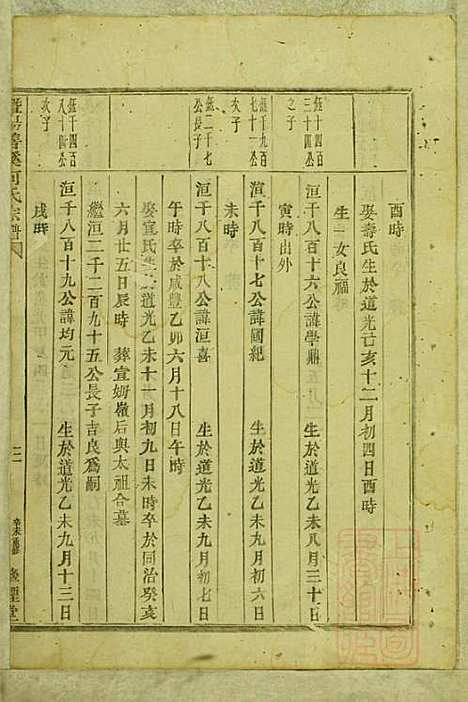 酉時
娶壽氏生於道光己亥十二月初四日酉時
生一女良福
鈺千四百三十四公之子
洹千八百十六公諱學鼎 生於道光乙未八月三十日
寅時出外
鈺千九百七十一公次子
洹千八百十七公諱國紀 生於道光乙未九月初六日
未時
鈺二千七公長子
洹千八百十八公諱洹喜 生於道光乙未九月初七日
午時卒於咸豐乙卯六月十八日午時
娶宣氏生道光乙未十一月初九日未時卒於同治癸亥
六月廿五日辰時 葬宣姆嶺后與太祖合墓
繼洹二千二百九十五公長子吉良為嗣
鈺千四百八十四公次子
洹千八百十九公諱均元 生於道光乙未九月十三日
戌時
何氏宗譜
三
辛未重修